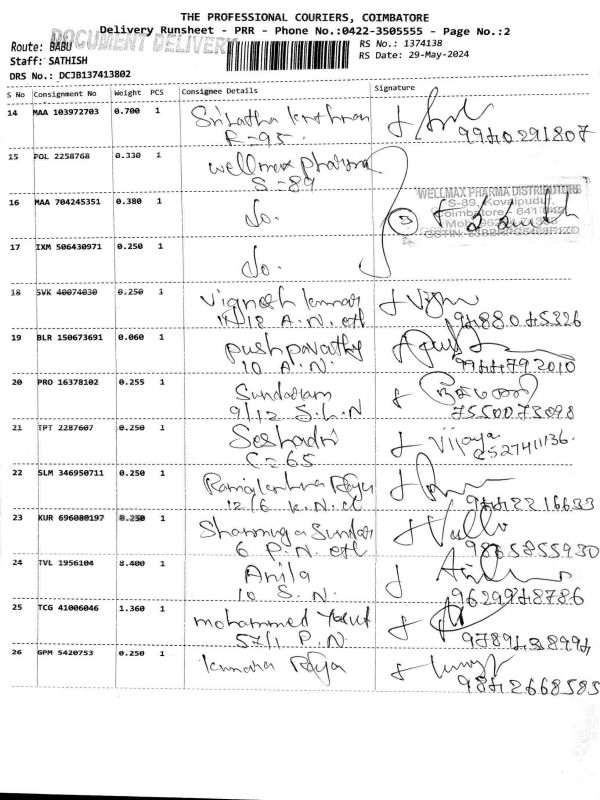 THE PROFESSIONAL COURIERS, COIMBATORE
Delivery Runsheet - PRR - Phone No.:0422-3505555 - Page No.:2
DOCUMENT DELIVERY
Route: BABU
RS No.: 1374138
Staff: SATHISH
RS Date: 29-May-2024
DRS No.: DCJB137413802
S No Consignment No Weight PCS Consignee Details Signature
14 MAA 103972703 0.700 1
R-95. 9940291807
15 POL 2258768 0.330 1 Wellmax pharma
S-89
WELLMAX PHARMA DISTRIBUTORS
S-89, Kovaipudur,
Coimbatore - 641 042
16 MAA 704245351 0.380 1 do.
17 IXM 506430971 0.250 1 do.
18 SVK 40074030 0.250 1 Vignesh kumar
9488045326
19 BLR 150673691 0.060 1 pushpavathy
10 A.N. 9944792010
20 PRO 16378102 0.255 1 Sundaram
9/12 S.L.N 7550073098
21 TPT 2287607 0.250 1 Seshadri Vijaya
C-65
22 SLM 346950711 0.250 1 Ramakrishna Raja
9442216633
23 KUR 696080197 0.250 1 Shanmuga Sundar
6 P.N. extl 9865855930
24 TVL 1956104 8.400 1 Anila
10 S.N. 9629948786
25 TCG 41006046 1.360 1 mohammed
57/1 P.N
26 GPM 5420753 0.250 1 kumara Raja
9842668585